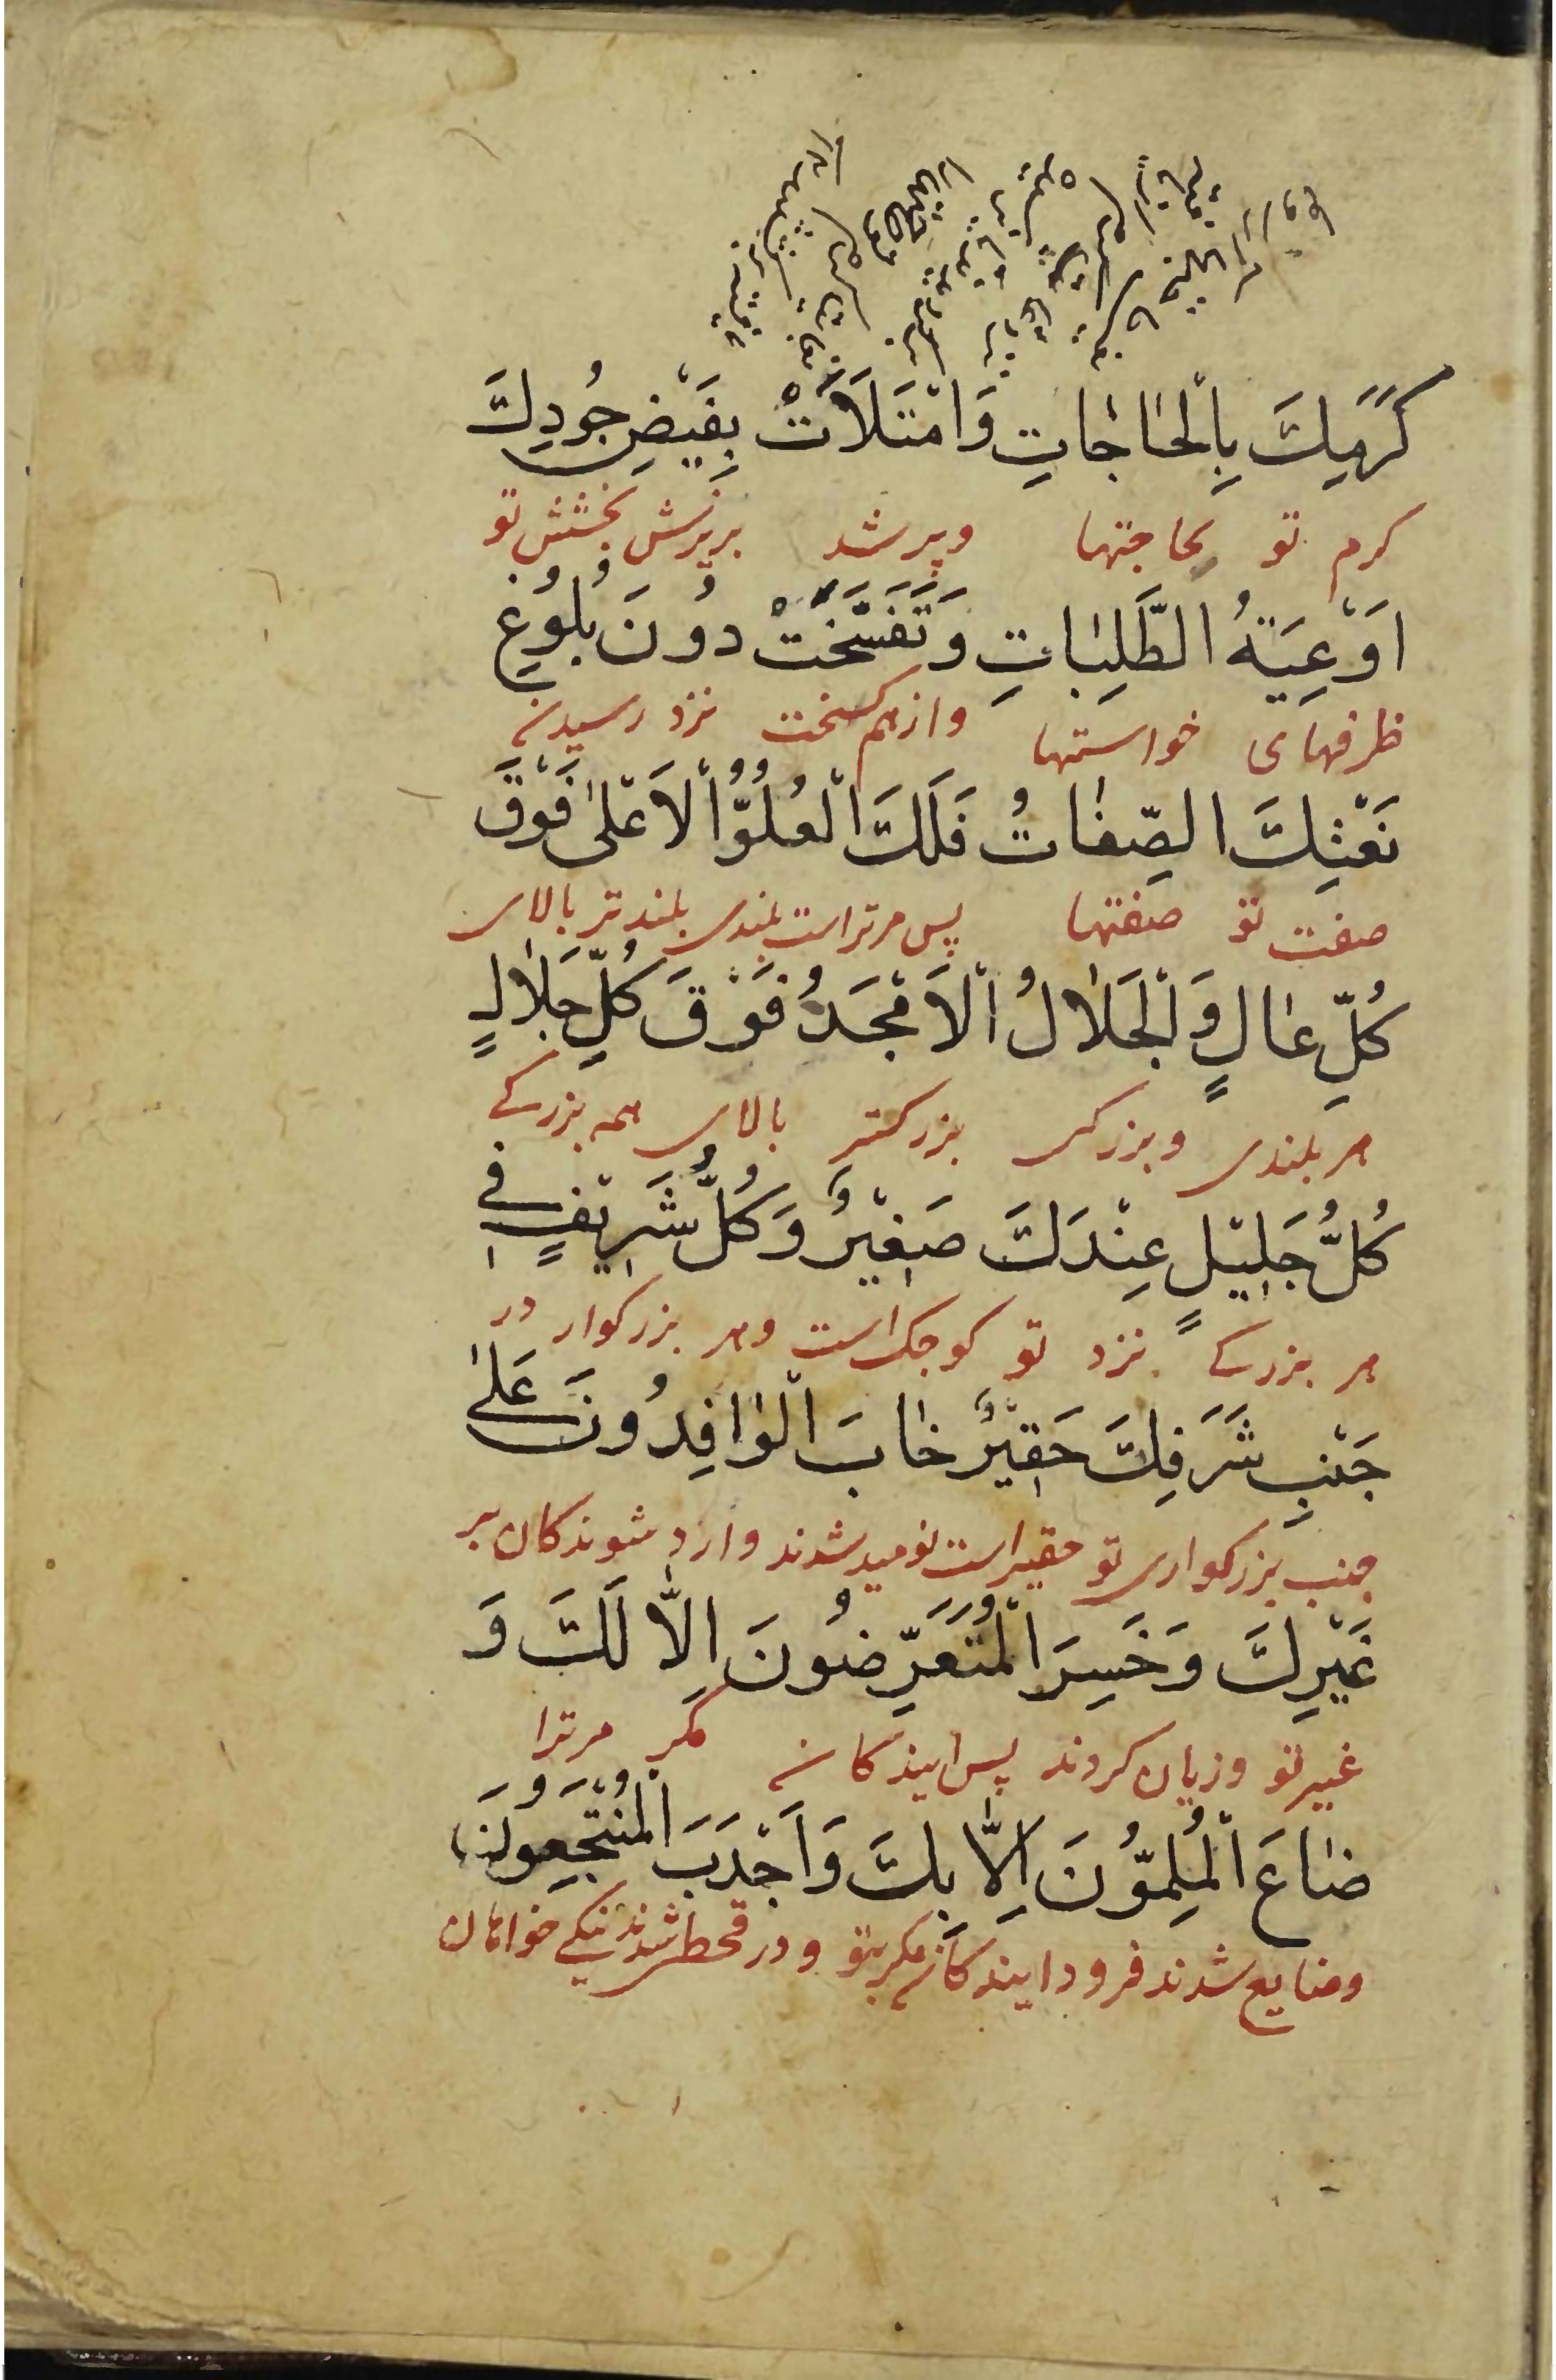 كَرَمِكَ بِالْحَاجَاتِ وَامْتَلَأَتْ بِفَيْضِ جُودِكَ
كرم تو بحاجتها وپر شد بریزش بخشش تو
اَوْعِيَةُ الطَّلِبَاتِ وَتَفَسَّخَتْ دُونَ بُلُوغِ
ظرفهای خواستها و از هم کسخت نزد رسیدن
نَعْتِكَ الصِّفَاتُ فَلَكَ الْعُلُوُّ الْاَعْلٰى فَوْقَ
صفت تو صفتها پس مر تراست بلندی بلندتر بالای
كُلِّ عَالٍ وَالْجَلَالُ الْاَمْجَدُ فَوْقَ كُلِّ جَلَالٍ
هر بلندی و بزرکی بزرکتر بالای همه بزرکے
كُلُّ جَلِيْلٍ عِنْدَكَ صَغِيْرٌ وَكُلُّ شَرِيْفٍ فِي
هر بزرکے نزد تو کوچک است و هر بزرکوار در
جَنْبِ شَرَفِكَ حَقِيْرٌ خَابَ الْوَافِدُونَ عَلٰى
جنب بزرکواری تو حقیر است نومید شدند وارد شوندکان بر
غَيْرِكَ وَخَسِرَ الْمُتَعَرِّضُونَ اِلَّا لَكَ وَ
غیر تو و زیان کردند پس ایندکان مکر مر ترا
ضَاعَ الْمُلِمُّونَ اِلَّا بِكَ وَاَجْدَبَ الْمُنْتَجِعُونَ
وضایع شدند فرود ایندکان مکر بتو و در قحط شدند نیکی خواهان